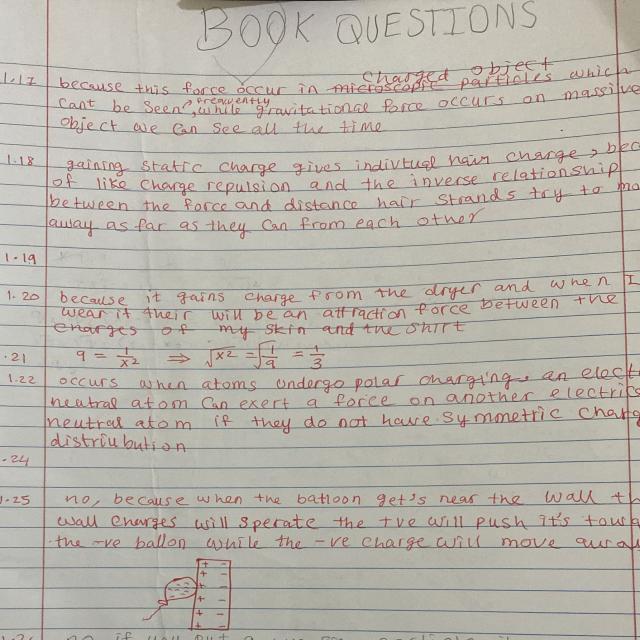 BOOK QUESTIONS
Charged object
1.17 because this force occur in microscopic particles which
cant be seen, frequently while gravitational force occurs on massive
object we can see all the time
1.18 gaining static charge gives indivtual hair charge, bec
of like charge repulsion and the inverse relationship
between the force and distance hair strands try to mo
away as far as they can from each other
1.19
1.20 because it gains charge from the dryer and when I
wear it their will be an attraction force between the
charges of my skin and the shirt
.21 9 = 1/x2 ⇒ √x2 = √1/9 = 1/3
1.22 occurs when atoms undergo polar charging an elect
neutral atom can exert a force on another electric
neutral atom if they do not have symmetric charg
distriubution
.24
1.25 no, because when the balloon get's near the wall th
wall charges will sperate the +ve will push it's towa
the -ve ballon while the -ve charge will move away
+ -
+ -
+ -
+ -
+ -
+ -
no if you put a